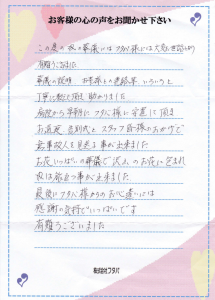 お客様の心の声をお聞かせ下さい
この度の 葬儀には フタバ様には大変お世話になり
有難うございました
葬儀の説明 お客様への連絡等 いろいろと
丁寧に教えて頂き 助かりました
病院から早朝に フタバ様に安置に頂き
お通夜 告別式と スタッフ皆様のおかげで
無事故人を見送る事が出来ました
お花いっぱいの葬儀で 沢山のお花に包まれ
旅立つ事が出来ました
最後に フタバ様からのお心遣いには
感謝の気持でいっぱいです
有難うございました
株式会社フタバ